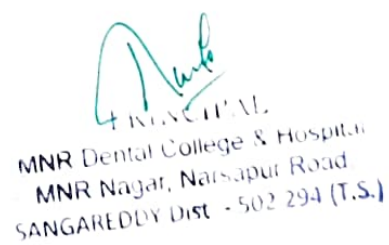 PRINCIPAL
MNR Dental College & Hospital
MNR Nagar, Narsapur Road
SANGAREDDY Dist - 502 294 (T.S.)